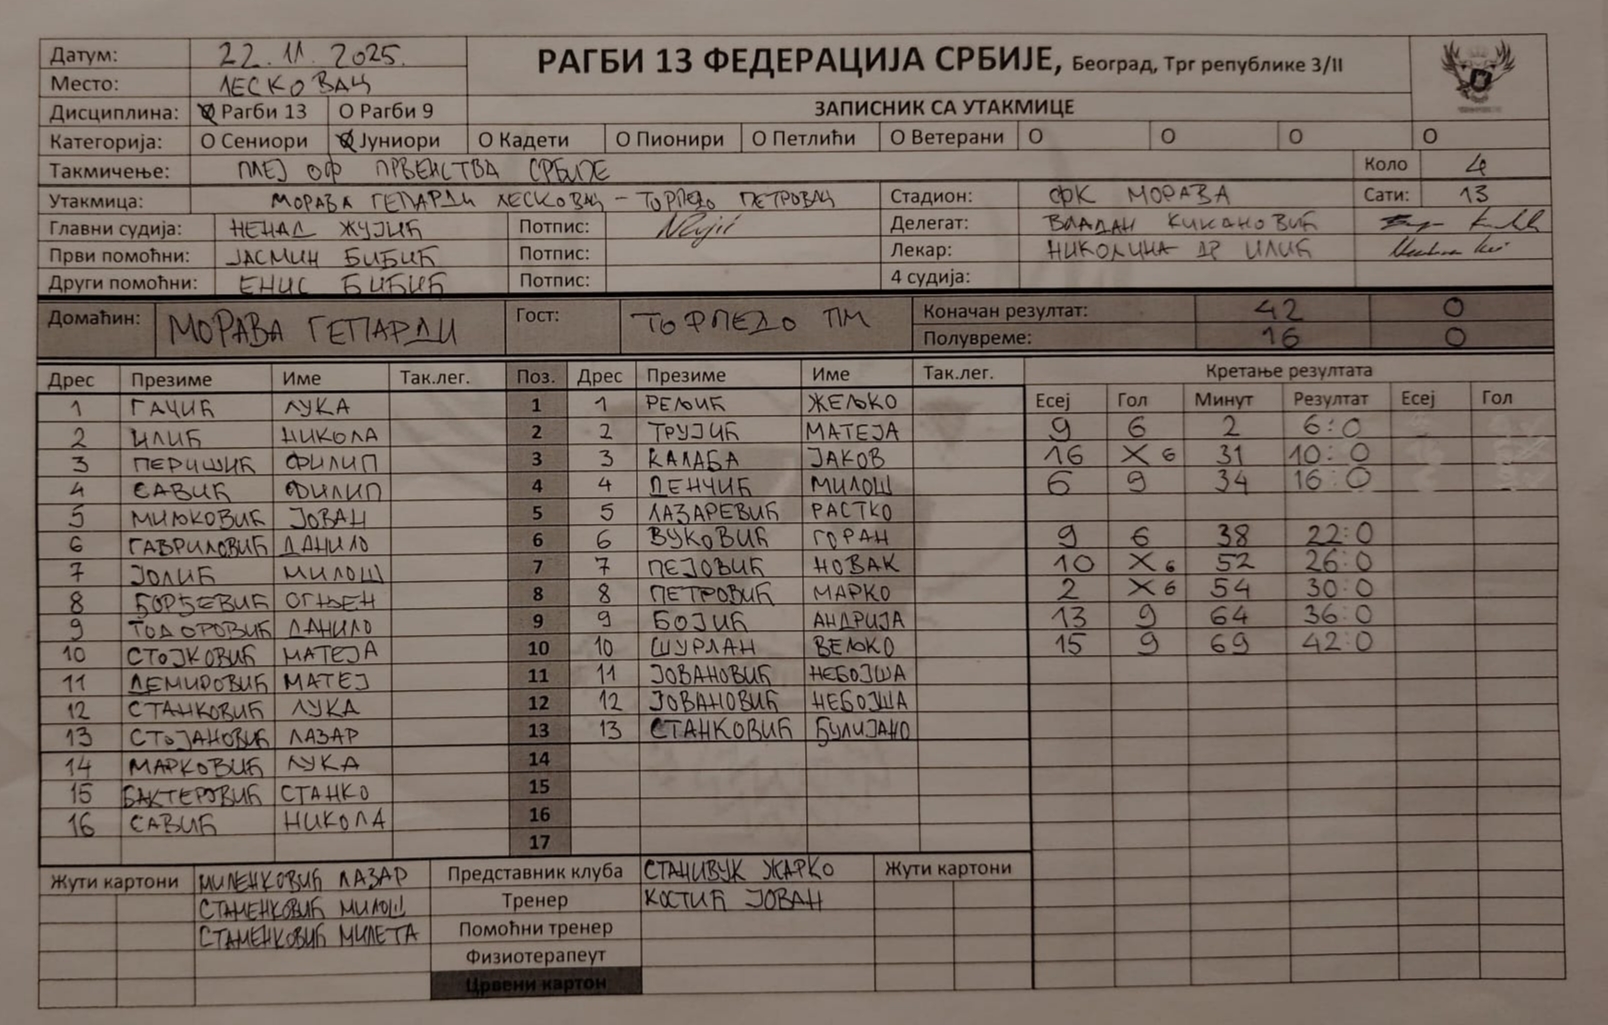 Датум: 22.11.2025. РАГБИ 13 ФЕДЕРАЦИЈА СРБИЈЕ, Београд, Трг републике 3/II
Место: ЛЕСКОВАЦ
Дисциплина: Рагби 13 О Рагби 9 ЗАПИСНИК СА УТАКМИЦЕ
Категорија: О Сениори Јуниори О Кадети О Пионири О Петлићи О Ветерани О О О О
Такмичење: ПЛЕЈ ОФ ПРВЕНСТВА СРБИЈЕ Коло 4
Утакмица: МОРАВА ГЕПАРДИ ЛЕСКОВАЦ - ТОРПЕДО ПЕТРОВАЦ Стадион: ФК МОРАВА Сати: 13
Главни судија: НЕНАД ЖУЈИЋ Потпис: Делегат: ВЛАДАН КИКАНОВИЋ
Први помоћни: ЈАСМИН БИБИЋ Потпис: Лекар: НИКОЛИНА ДР ИЛИЋ
Други помоћни: ЕНИС БИБИЋ Потпис: 4 судија:
Домаћин: МОРАВА ГЕПАРДИ Гост: ТОРПЕДО ПМ Коначан резултат: 42 0
Полувреме: 16 0
Дрес Презиме Име Так.лег. Поз. Дрес Презиме Име Так.лег. Кретање резултата
Есеј Гол Минут Резултат Есеј Гол
1 ГАЧИЋ ЛУКА 1 1 РЕЉИЋ ЖЕЉКО
2 ИЛИЋ НИКОЛА 2 2 ТРУЈИЋ МАТЕЈА 9 6 2 6:0
3 ПЕРИШИЋ ФИЛИП 3 3 КАЛАБА ЈАКОВ 16 X 6 31 10:0
4 САВИЋ ФИЛИП 4 4 ДЕНЧИЋ МИЛОШ 6 9 34 16:0
5 МИЉКОВИЋ ЈОВАН 5 5 ЛАЗАРЕВИЋ РАСТКО
6 ГАВРИЛОВИЋ ДАНИЛО 6 6 ВУКОВИЋ ГОРАН 9 6 38 22:0
7 ЈОЛИЋ МИЛОШ 7 7 ПЕЈОВИЋ НОВАК 10 X 6 52 26:0
8 ЂОРЂЕВИЋ ОГЊЕН 8 8 ПЕТРОВИЋ МАРКО 2 X 6 54 30:0
9 ТОДОРОВИЋ ДАНИЛО 9 9 БОЈИЋ АНДРИЈА 13 9 64 36:0
10 СТОЈКОВИЋ МАТЕЈА 10 10 ШУРЛАН ВЕЉКО 15 9 69 42:0
11 ДЕМИРОВИЋ МАТЕЈ 11 11 ЈОВАНОВИЋ НЕБОЈША
12 СТАНКОВИЋ ЛУКА 12 12 ЈОВАНОВИЋ НЕБОЈША
13 СТОЈАНОВИЋ ЛАЗАР 13 13 СТАНКОВИЋ ЂУЛИЈАНО
14 МАРКОВИЋ ЛУКА 14
15 БАКТЕРОВИЋ СТАНКО 15
16 САВИЋ НИКОЛА 16
17
Жути картони МИЛЕНКОВИЋ ЛАЗАР Представник клуба СТАНИВУК ЖАРКО Жути картони
СТАМЕНКОВИЋ МИЛОШ Тренер КОСТИЋ ЈОВАН
СТАМЕНКОВИЋ МИЛЕТА Помоћни тренер
Физиотерапеут
Црвени картон